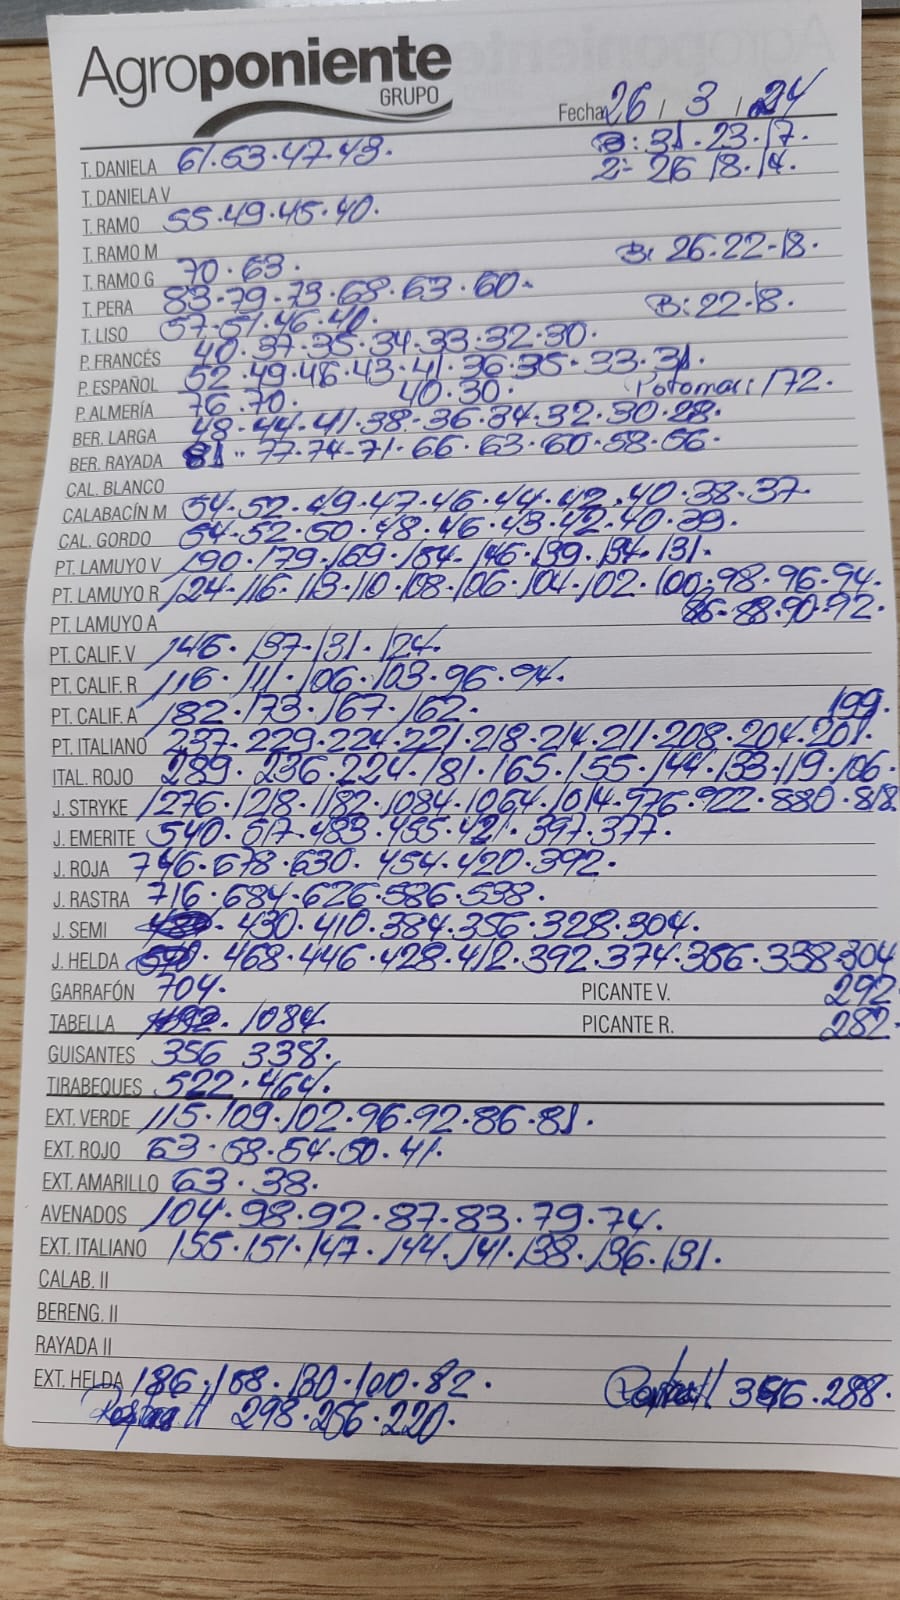 Agroponiente
GRUPO
Fecha 26 / 3 / 24
T. DANIELA 61.53.47.43. B: 31.23.17.
T. DANIELA V 2: 26 18.14.
T. RAMO 55.49.45.40.
T. RAMO M
T. RAMO G 70.63. B: 26.22.18.
T. PERA 83.79.73.68.63.60.
T. LISO 57.51.46.40. B: 22.18.
P. FRANCÉS 40.37.35.34.33.32.30.
P. ESPAÑOL 52.49.46.43.41.36.35.33.31.
P. ALMERÍA 76.70. 40.30. 172.
BER. LARGA 48.44.41.38.36.34.32.30.28.
BER. RAYADA 81.77.74.71.66.63.60.58.56.
CAL. BLANCO
CALABACÍN M 54.52.49.47.46.44.42.40.38.37.
CAL. GORDO 54.52.50.48.46.43.42.40.39.
PT. LAMUYO V 190.179.169.154.146.139.134.131.
PT. LAMUYO R 124.116.113.110.108.106.104.102.100.98.96.94.
PT. LAMUYO A 86.88.90.92.
PT. CALIF. V 146.137.131.124.
PT. CALIF. R 116.111.106.103.96.94.
PT. CALIF. A 182.173.167.162. 199.
PT. ITALIANO 237.229.224.221.218.214.211.208.204.201.
ITAL. ROJO 289.236.224.181.165.155.144.133.119.106.
J. STRYKE 1276.1218.1182.1084.1064.1014.976.922.880.818
J. EMERITE 540.517.483.455.421.397.377.
J. ROJA 746.678.630.454.420.392.
J. RASTRA 716.684.626.586.538.
J. SEMI 430.410.384.356.328.304.
J. HELDA 468.446.428.412.392.374.356.338.304
GARRAFÓN 704. PICANTE V. 292
TABELLA 1084. PICANTE R. 282.
GUISANTES 356 338.
TIRABEQUES 522.464.
EXT. VERDE 115.109.102.96.92.86.81.
EXT. ROJO 63.58.54.50.41.
EXT. AMARILLO 63.38.
AVENADOS 104.98.92.87.83.79.74.
EXT. ITALIANO 155.151.147.144.141.138.136.131.
CALAB. II
BERENG. II
RAYADA II
EXT. HELDA 186.158.130.100.82. 288.
298.256.220.